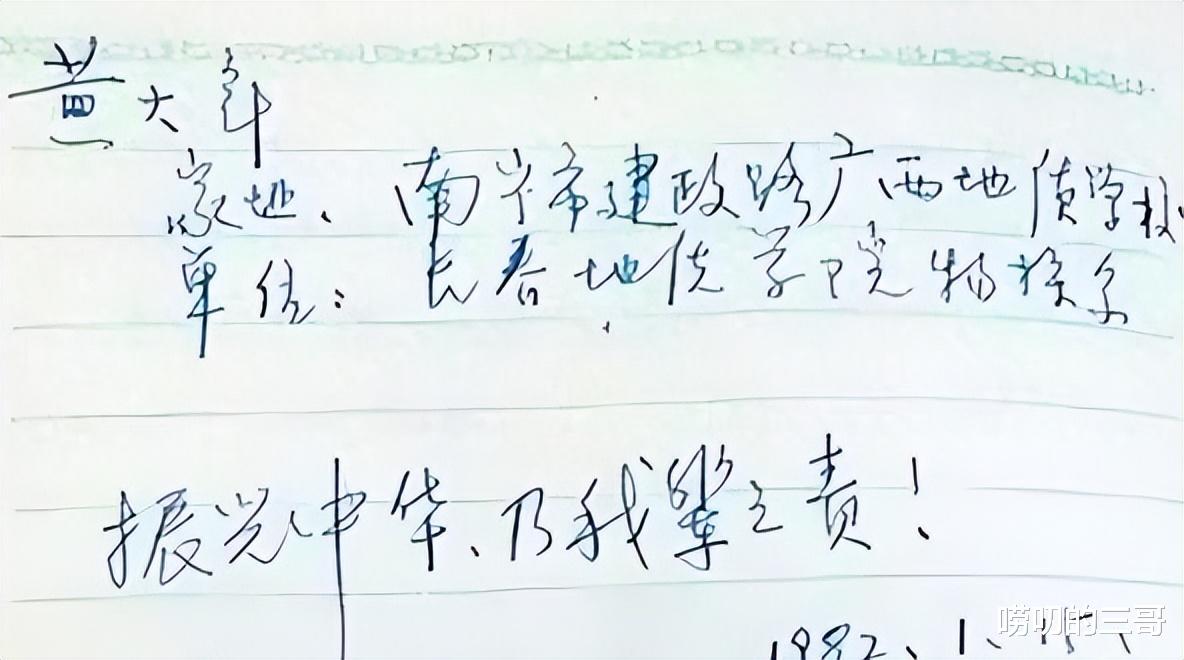 黄大年
家地、南宁市建政路广西地质学校
单位：长春地质学院物探系
振兴中华、乃我辈之责！
1982、1、
唠叨的三哥